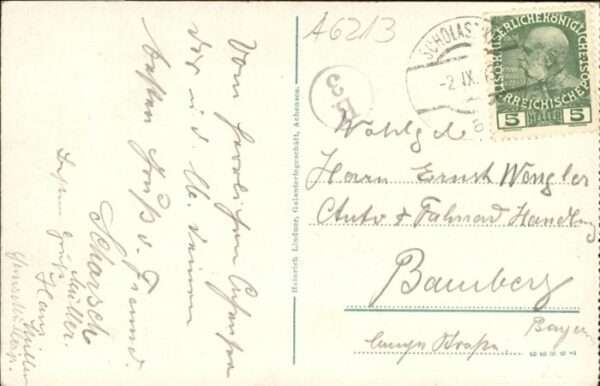 A6213
Vom herrlichen Achensee
dir u. d. lb. Deinen
besten Gruß v. Freund
Scharsch
Müller.
Hans
Müller
Heinrich Lindner, Galanteriegeschäft, Achensee.
SCHOLAS
-2.IX.
KAISERLICHE KÖNIGLICHE
ÖSTERREICHISCHE POST
5 HELLER 5
Wohlgeb
Herrn Ernst Wengler
Auto & Fahrrad Handlung
Bamberg
Bayern
Lange Straße